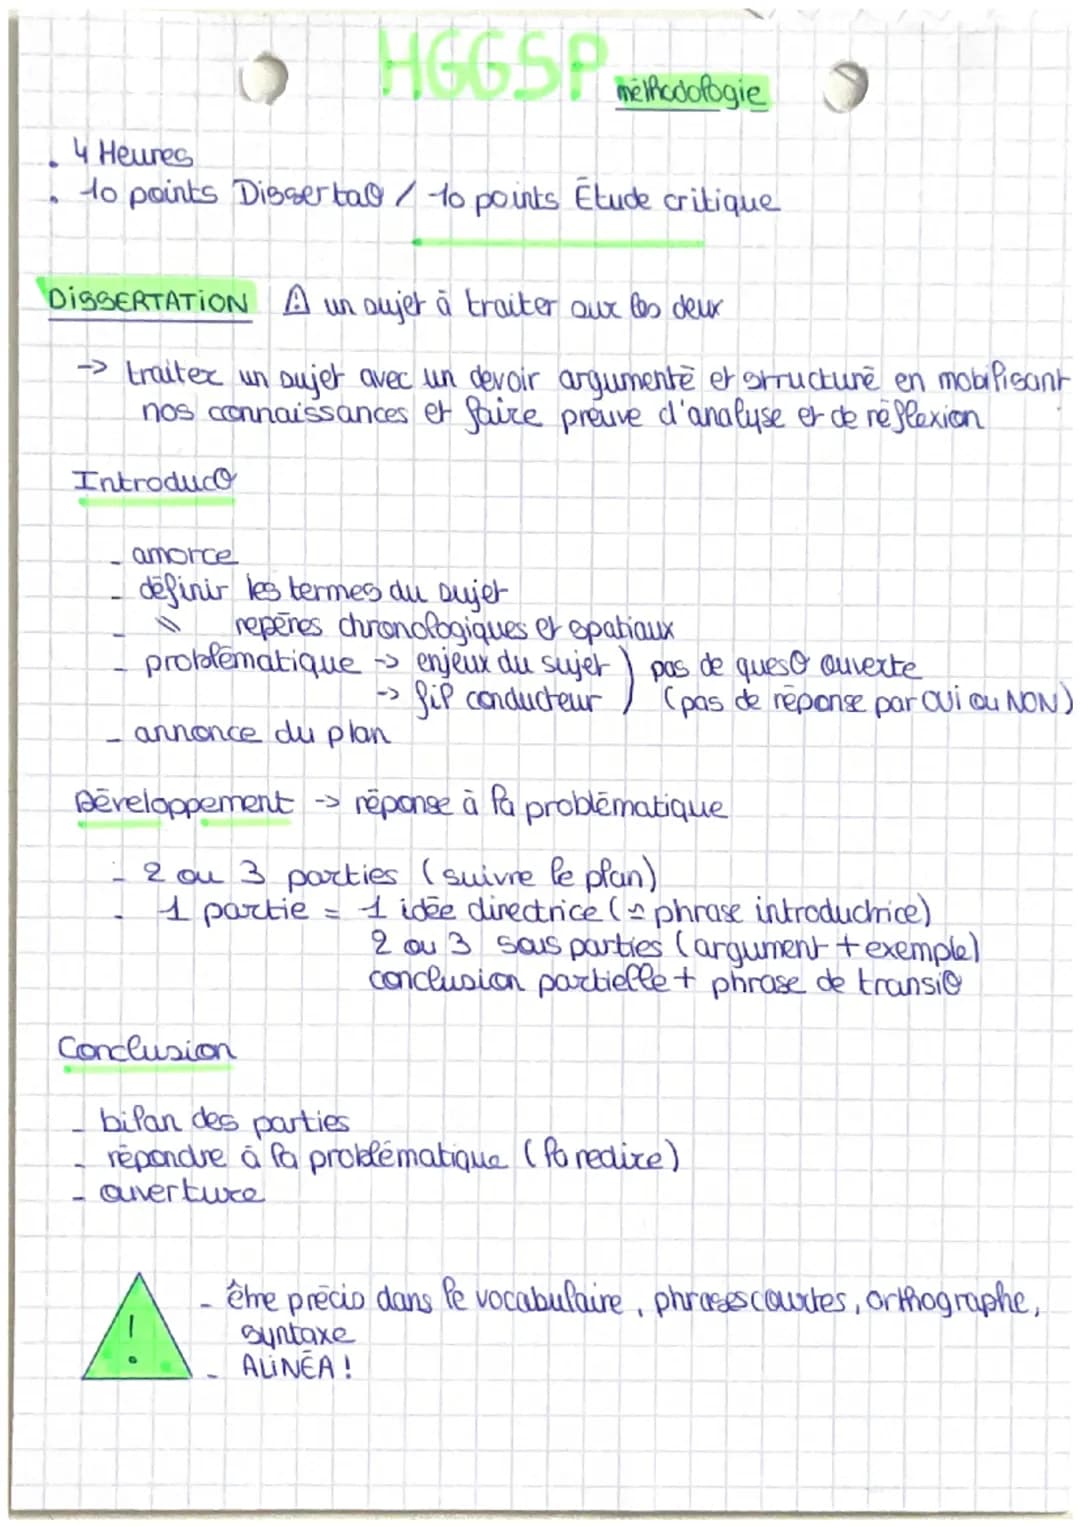 HGGSP méthodologie
. 4 Heures
. 10 points DissertaO / 10 points Étude critique
DISSERTATION ⚠ un sujet à traiter aux les deux
-> traiter un sujet avec un devoir argumenté et structuré en mobilisant
nos connaissances et faire preuve d'analyse et de réflexion
IntroducO
- amorce
- définir les termes du sujet
- \\ repères chronologiques et spatiaux
- problématique -> enjeux du sujet ) pas de quesO ouverte
-> fil conducteur ) (pas de réponse par OUI ou NON)
- annonce du plan
Développement -> réponse à la problématique
- 2 ou 3 parties (suivre le plan)
- 1 partie = 1 idée directrice ( phrase introductrice)
2 ou 3 sous parties (argument + exemple)
conclusion partielle + phrase de transiO
Conclusion
- bilan des parties
- répondre à la problématique (la redire)
- ouverture
! - être précis dans le vocabulaire, phrases courtes, orthographe,
syntaxe
- ALINÉA !